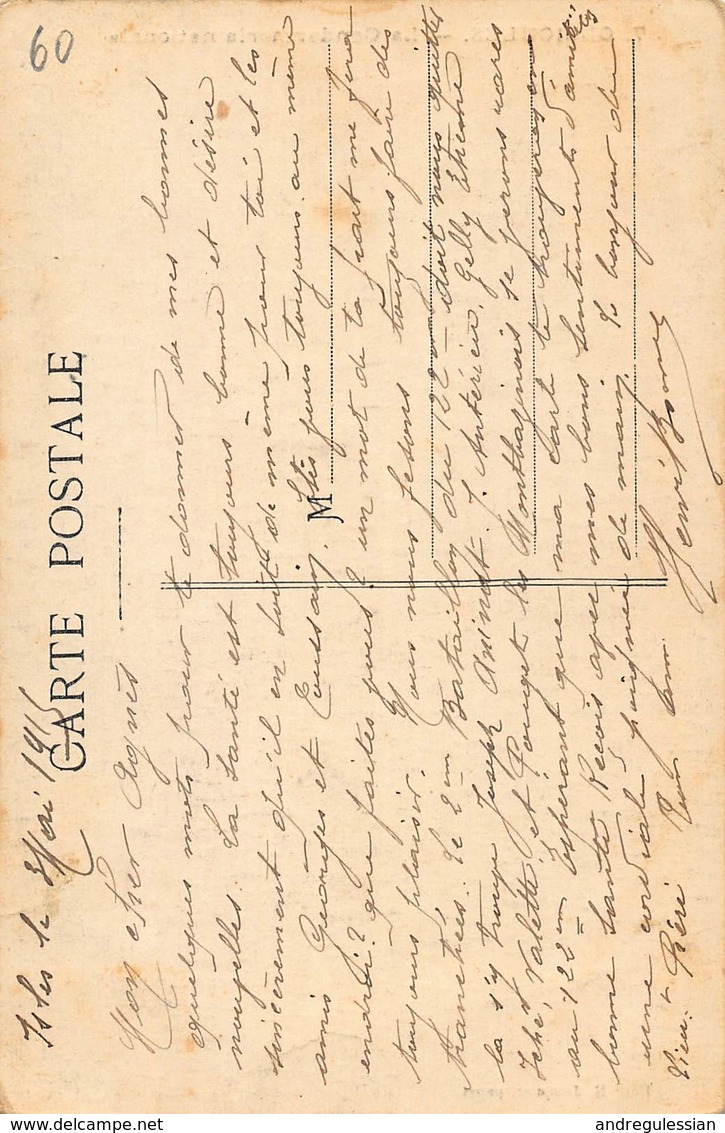 60
Isles le Mai 1915
CARTE POSTALE
Mon cher Agnès
Quelques mots pour te donner de mes bonnes
nouvelles. La santé est toujours bonne et désire
sincèrement qu'il en soit de même pour toi et les
amis Georges et Toussain. Êtes vous toujours au même
M
endroit? que faites vous? un mot de ta part me fera
toujours plaisir. Nous nous fesons toujours faire des
tranchées. Le 2em Bataillon du 122 doit nous quitter
la s'y trouve Joseph Gelly Etienne
Valette et Pouget les Montbaginois se ferons rares
au 122em Espérant que ma carte te trouveras en
bonne santé Reçois avec mes bons sentiments d'amitiés
une cordiale poignée de main. Le bonjour du
Lieu. Ton ami
Henri
andregulessian